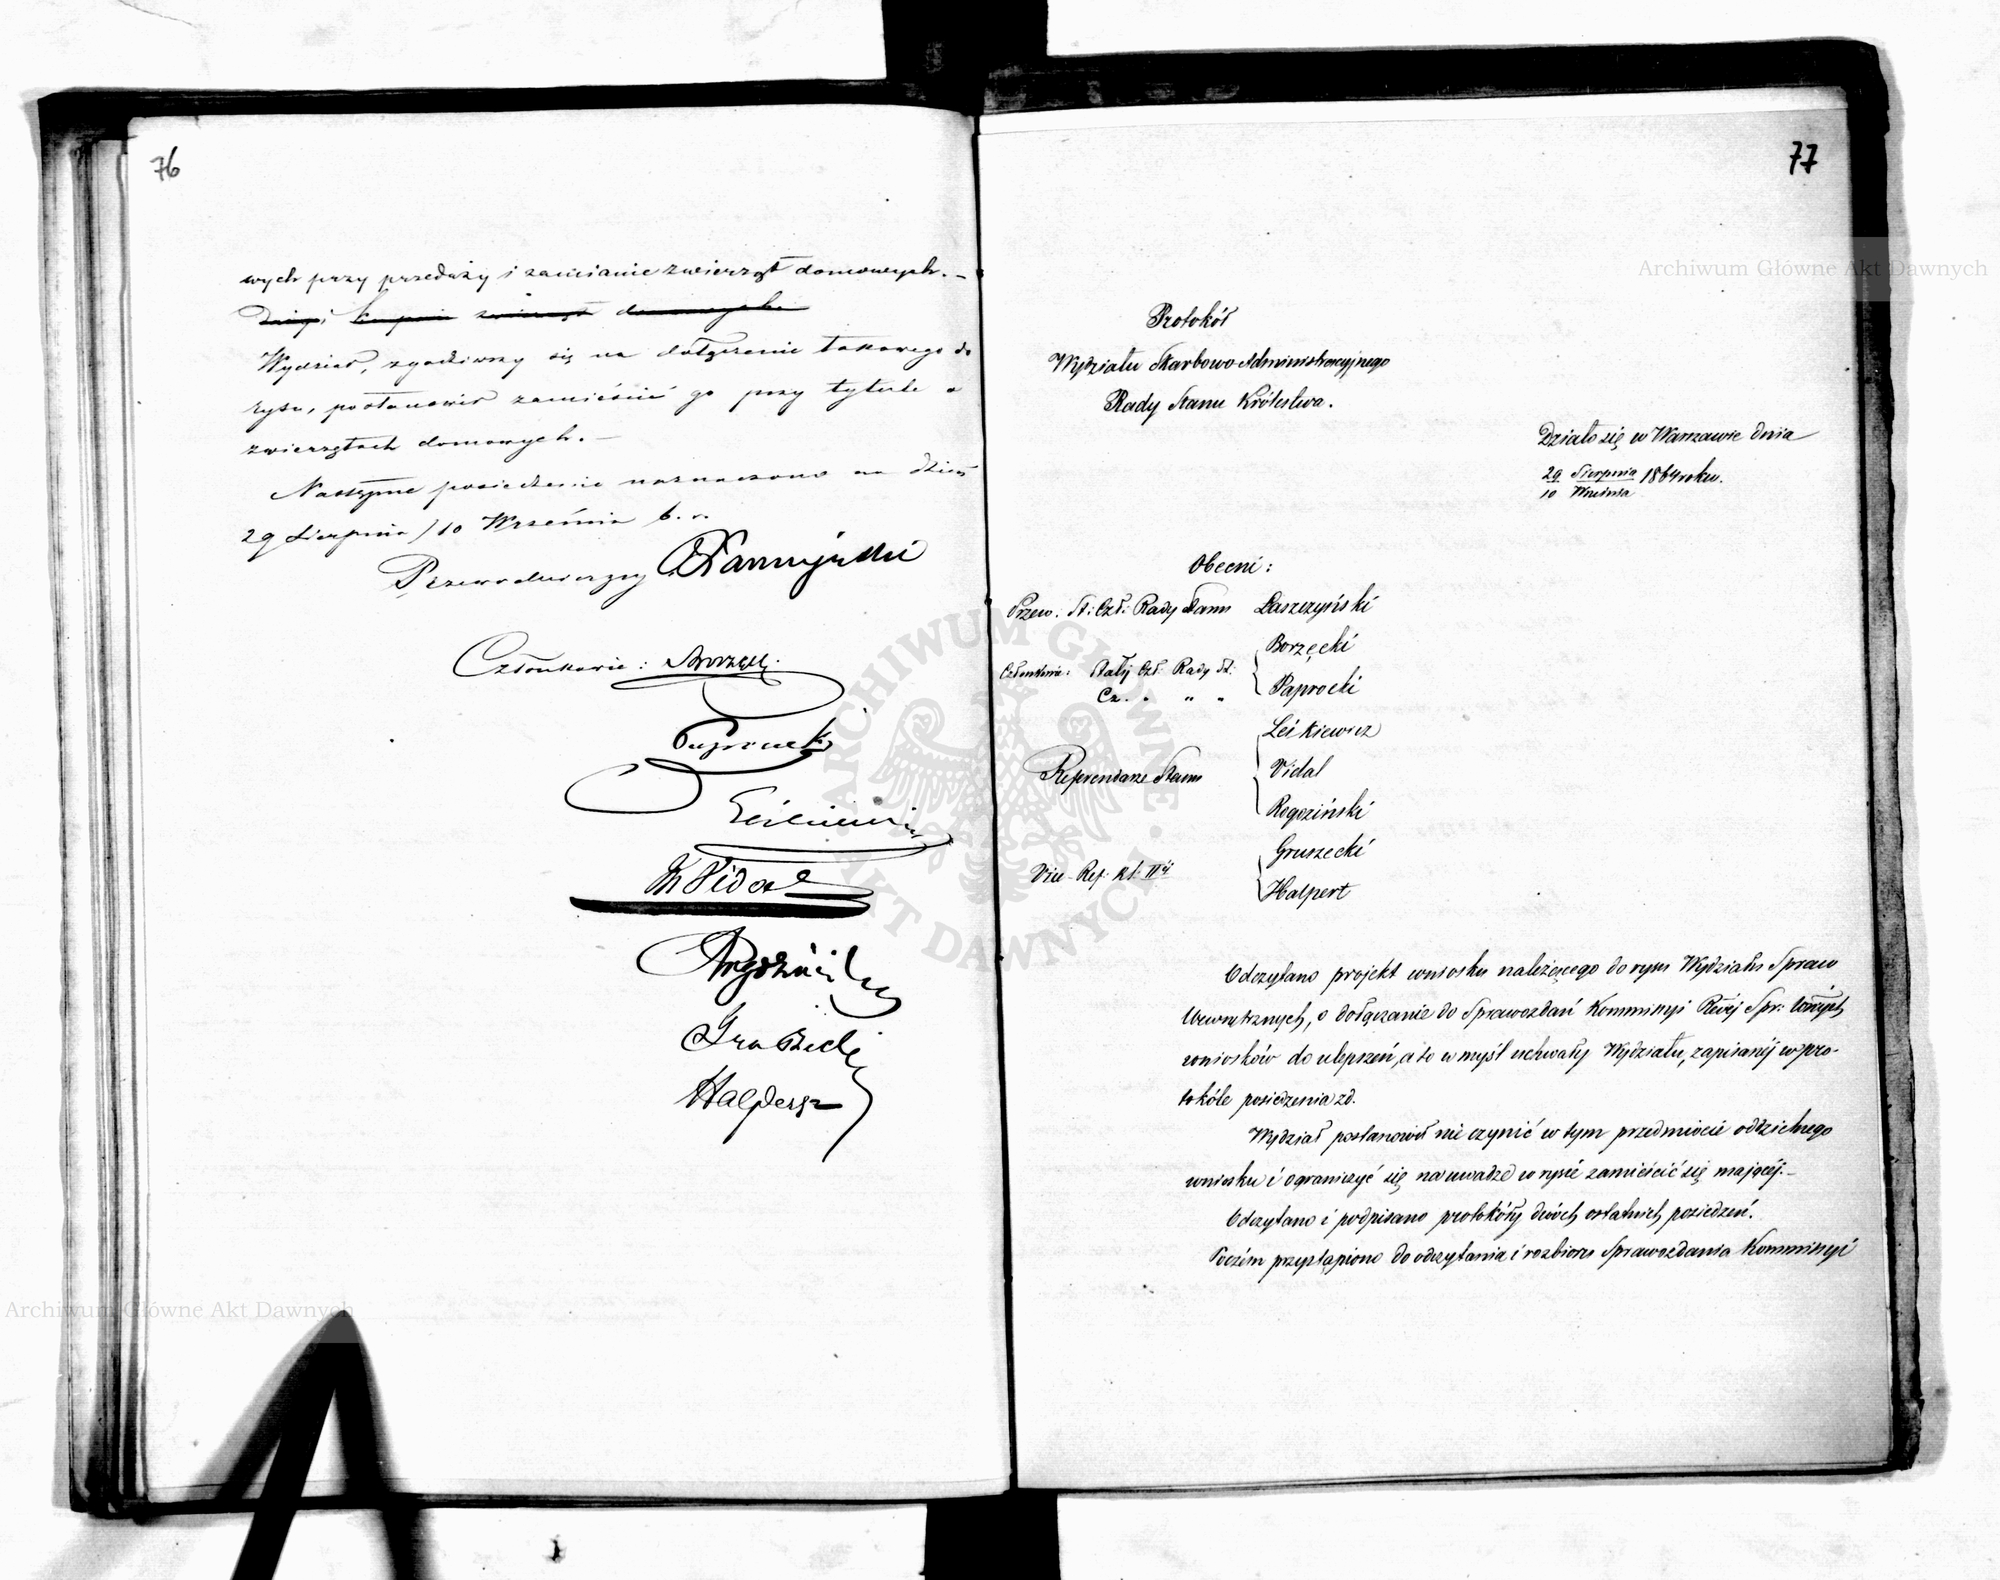 76
wych przy przedaży i zamianie zwierząt domowych. –
kupnie zwierząt domowych
Wydział, zgodziwszy się na dołączenie takowego do
rysu, postanowił zamieścić go przy tytule o
zwierzętach domowych. –
Następne posiedzenie naznaczono na dzień
29 Sierpnia / 10 Września b. r.
Przewodniczący
Członkowie:
Vidal
Halpert
77
Protokół
Wydziału Skarbowo Administracyjnego
Rady Stanu Królestwa.
Działo się w Warszawie dnia
29 Sierpnia
10 Września 1864 roku.
Obecni:
Przew. St: Czł: Rady Stanu Łaszczyński
Borzęcki
Członkowie: Stały Czł. Rady St:
Cz. " " "
Paprocki
Leśkiewicz
Referendarze Stanu Vidal
Rogoziński
Gruszecki
Vice-Ref. Kl. IIéj
Halpert
Odczytano projekt wniosku należącego do rysu Wydziału Spraw
Wewnętrznych, o dołączanie do Sprawozdań Kommissyi Rwéj Spr: Wnych
wniosków do ulepszeń, a to w myśl uchwały Wydziału, zapisanéj w pro-
tokóle posiedzenia zd.
Wydział postanowił nie czynić w tym przedmiocie oddzielnego
wniosku i ograniczyć się na uwadze w rysie zamieścić się mającéj. –
Odczytano i podpisano protokóły dwóch ostatnich posiedzeń.
Poczém przystąpiono do odczytania i rozbioru Sprawozdania Kommissyi
Archiwum Główne Akt Dawnych
Archiwum Główne Akt Dawnych
ARCHIWUM GŁÓWNE AKT DAWNYCH